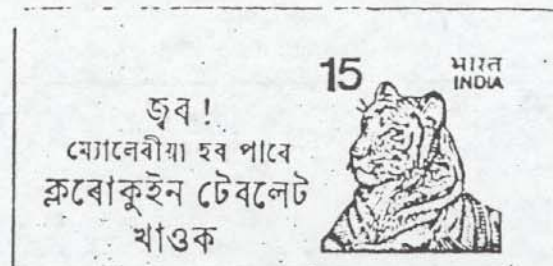 জ্বৰ !
মেলেৰীয়া হব পাৰে
ক্লৰোকুইন টেবলেট
খাওক
15
भारत
INDIA